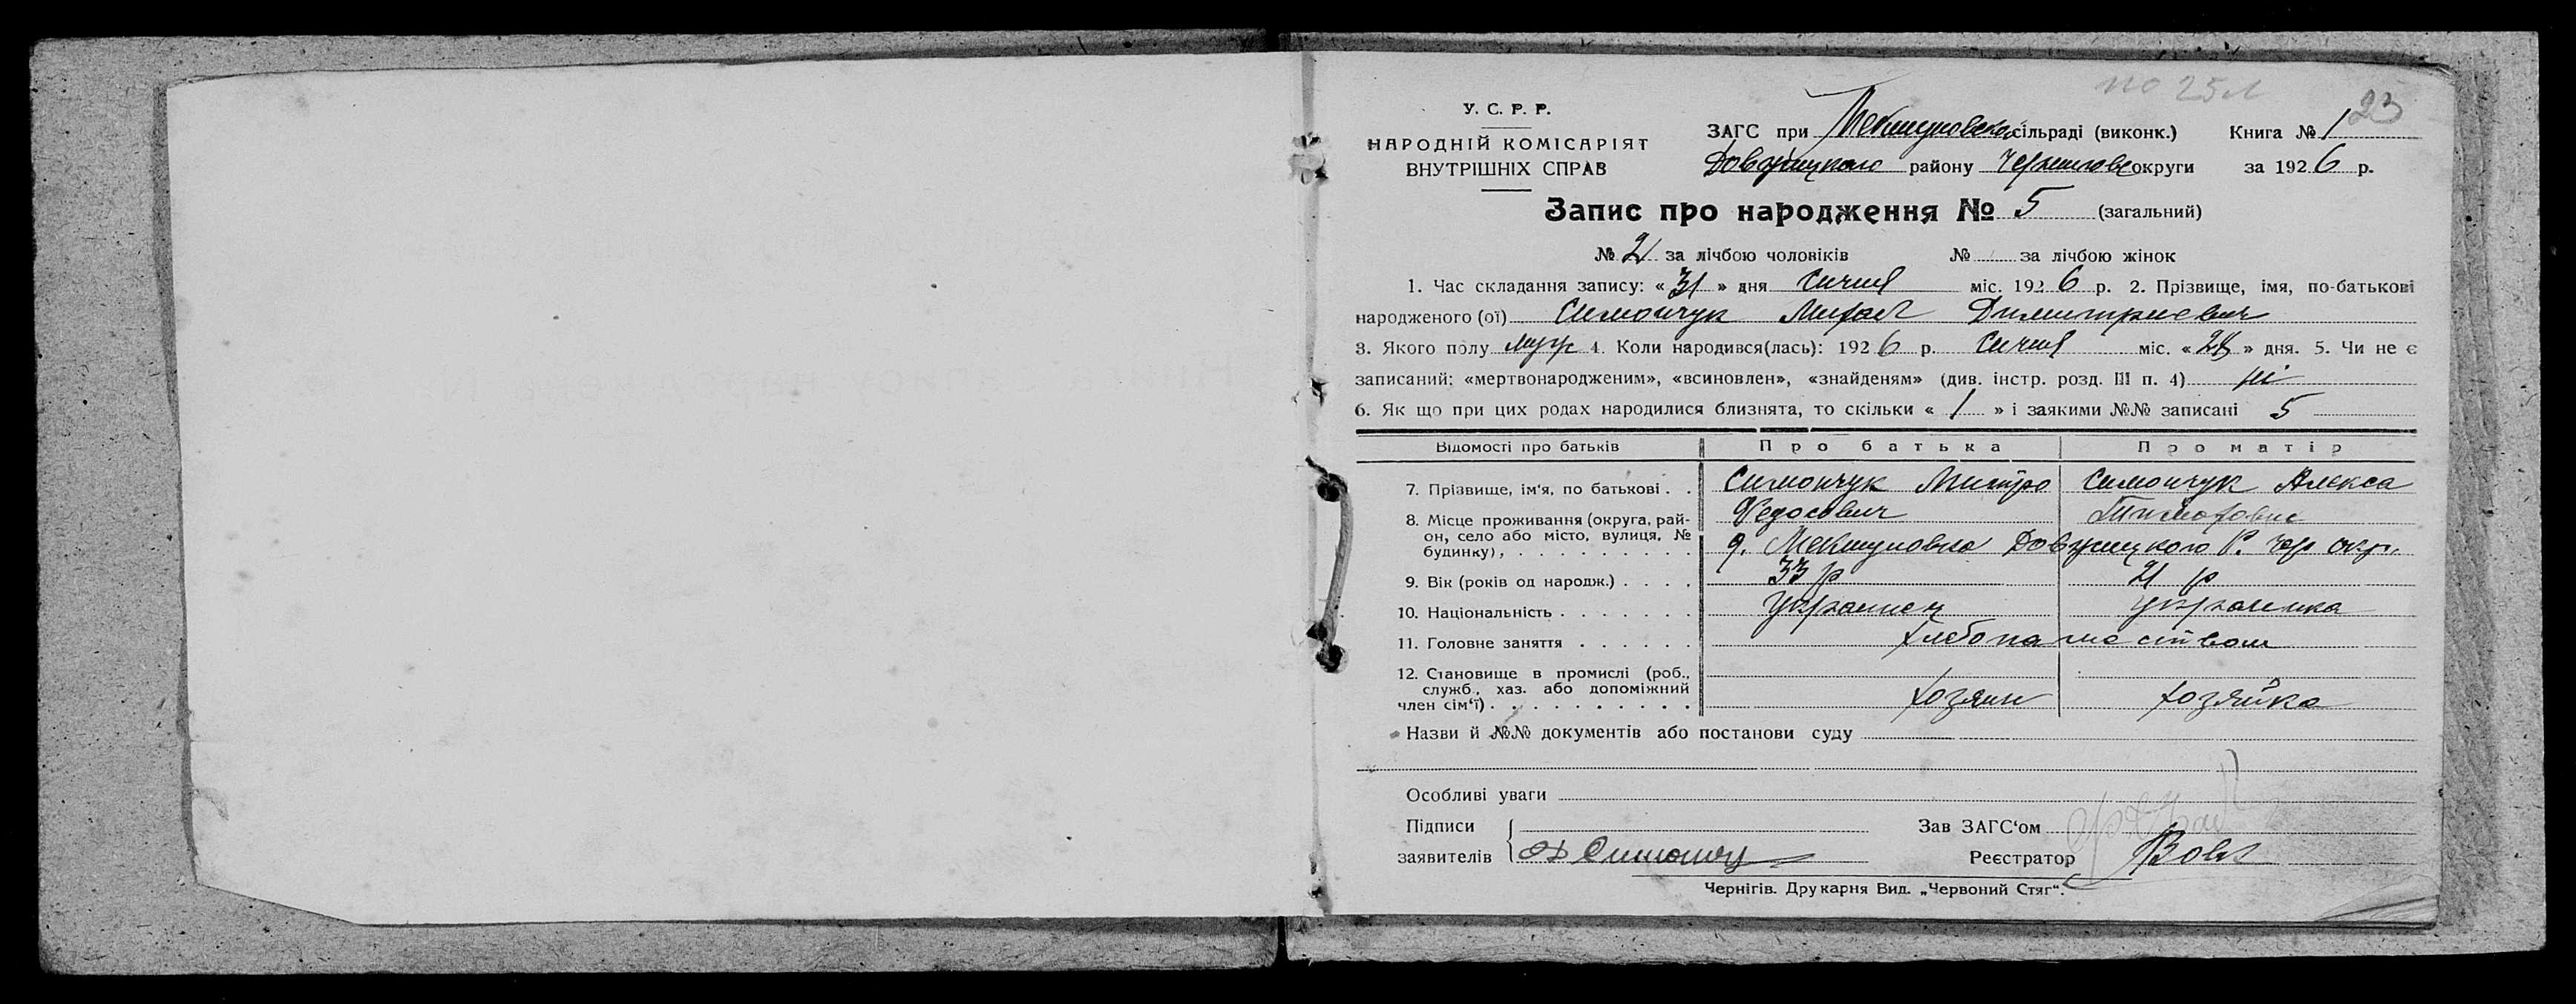 по 25 л
23
У. С. Р. Р.
НАРОДНІЙ КОМІСАРІЯТ
ВНУТРІШНІХ СПРАВ
ЗАГС при сільраді (виконк.) Книга № 1
району округи за 1926 р.
Запис про народження № 5 (загальний)
№ 2 за лічбою чоловіків № за лічбою жінок
1. Час складання запису: « 31 » дня Сичня міс. 1926 р. 2. Прізвище, імя, по-батькові
народженого (ої) Симончук Михаил Димитриевич
3. Якого полу муж 4. Коли народився(лась): 1926 р. Сичня міс. « 28 » дня. 5. Чи не є
записаний: «мертвонародженим», «всиновлен», «знайденям» (див. інстр. розд. III п. 4) ні
6. Як що при цих родах народилися близнята, то скільки « 1 » і заякими №№ записані 5
Відомості про батьків Про батька Про матір
7. Прізвище, ім'я, по батькові . . Симончук Митро Симончук Алекса
Федосович
8. Місце проживання (округа, рай-
он, село або місто, вулиця, №
будинку), . . . . . . . . . Р. окр.
9. Вік (років од народж.) . . . . 33 р 21 р
10. Національність . . . . . . . Украинец Украинка
11. Головне заняття . . . . . . Хлебопашеством
12. Становище в промислі (роб.,
служб., хаз. або допоміжний
член сім'ї) . . . . . . . . . . Хозяин Хозяйка
Назви й №№ документів або постанови суду
Особливі уваги
Підписи Зав ЗАГС'ом
заявителів Реєстратор Вовк
Чернігів. Друкарня Вид. „Червоний Стяг".